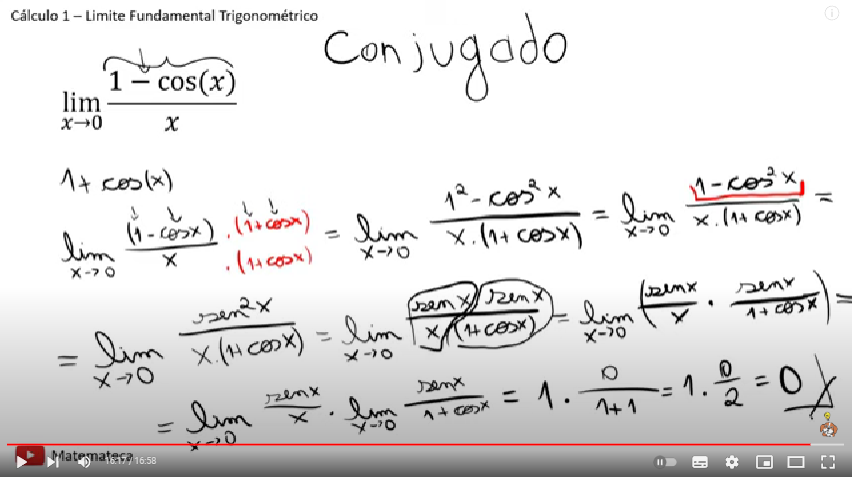 Cálculo 1 – Limite Fundamental Trigonométrico
Conjugado
lim x→0 1 − cos(x) / x
1 + cos(x)
lim x→0 (1 - cosx) / x . (1 + cosx) / . (1 + cosx) = lim x→0 1² - cos²x / x . (1 + cosx) = lim x→0 1 - cos²x / x . (1 + cosx) =
= lim x→0 sen²x / x . (1 + cosx) = lim x→0 senx / x senx / (1 + cosx) = lim x→0 (senx / x . senx / 1 + cosx) =
= lim x→0 senx / x . lim x→0 senx / 1 + cosx = 1 . 0 / 1 + 1 = 1 . 0 / 2 = 0
Matemateca
16:17 / 16:58